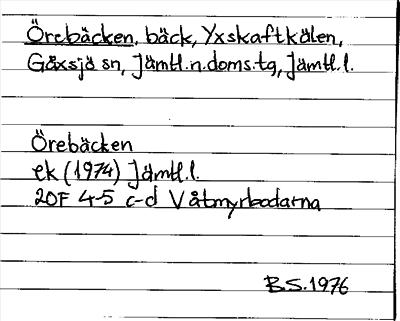 Örebäcken, bäck, Yxskaftkälen,
Gåxsjö sn, Jämtl.n.doms.tg, Jämtl.l.
Örebäcken
ek (1974) Jämtl.l.
20F 4-5 c-d Våtmyrbodarna
B.S. 1976